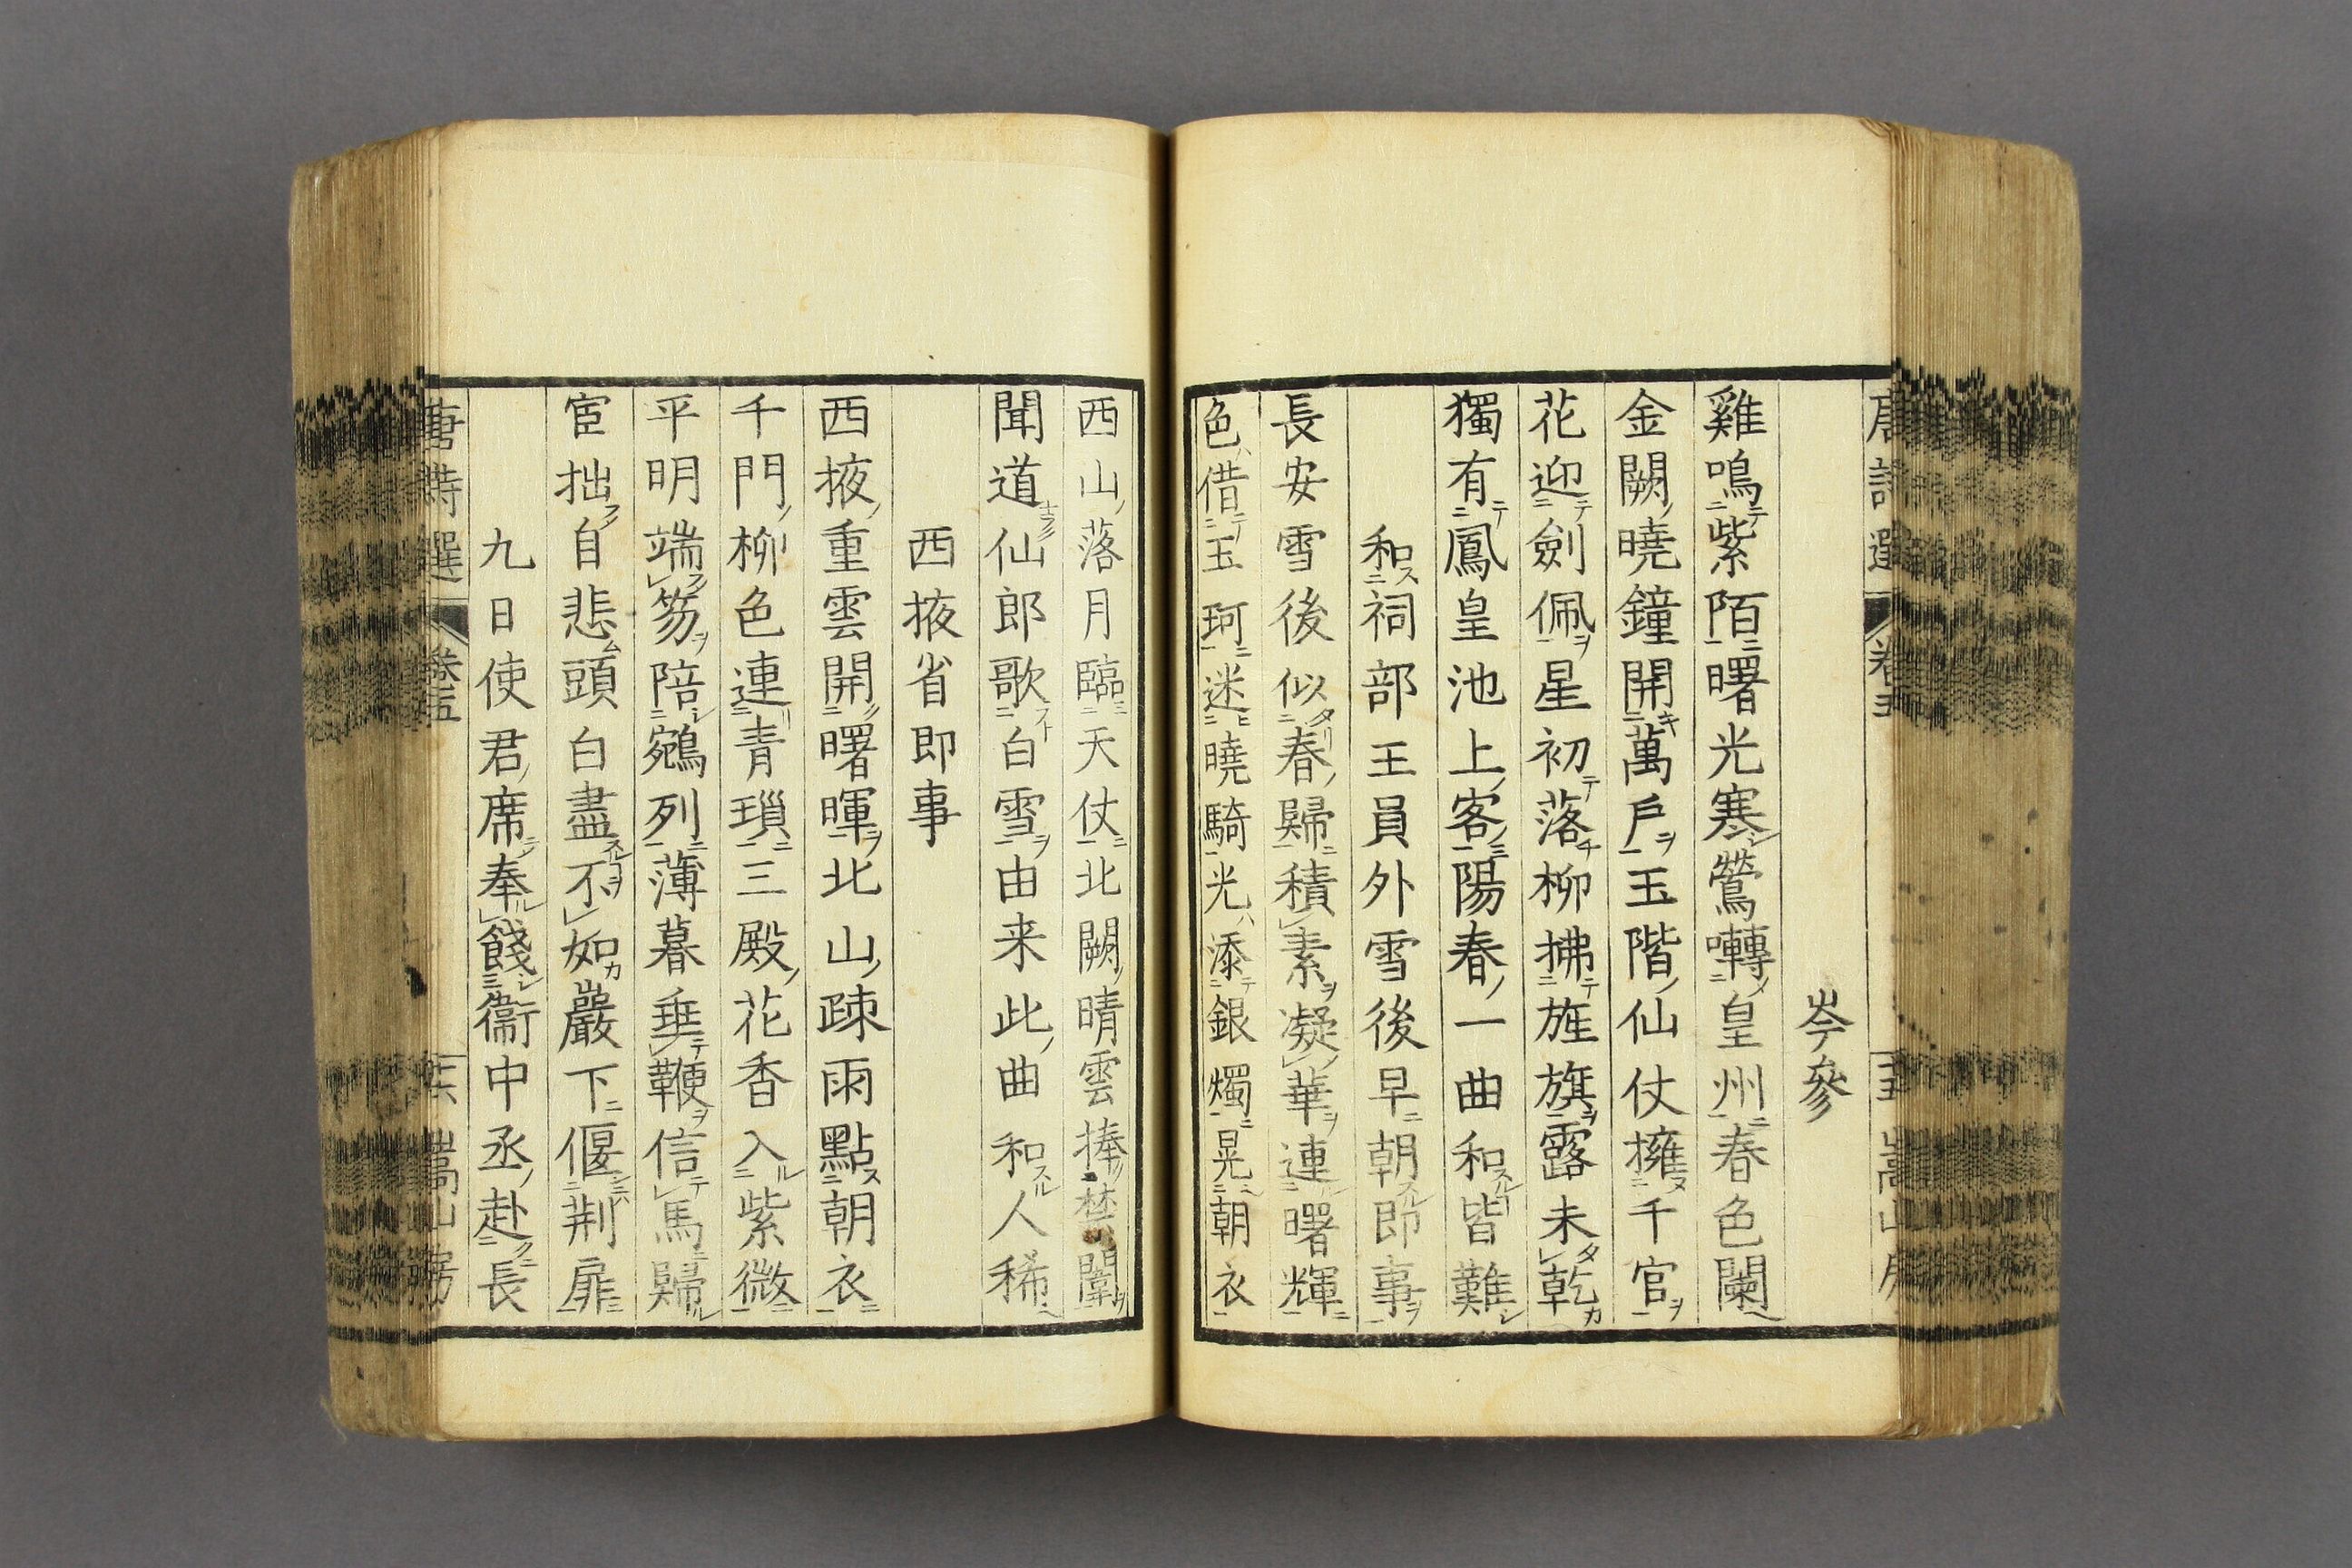 唐詩選 卷五 嵩山房
岑參
雞鳴紫陌曙光寒鶯囀皇州春色闌
金闕曉鐘開萬戶玉階仙仗擁千官
花迎劍佩星初落柳拂旌旗露未乾
獨有鳳皇池上客陽春一曲和皆難
和祠部王員外雪後早朝即事
長安雪後似春歸積素凝華連曙輝
色借玉珂迷曉騎光添銀燭晃朝衣
西山落月臨天仗北闕晴雲捧禁闈
聞道仙郎歌白雪由来此曲和人稀
西掖省即事
西掖重雲開曙暉北山疎雨點朝衣
千門柳色連青瑣三殿花香入紫微
平明端笏陪鵷列薄暮垂鞭信馬歸
宦拙自悲頭白盡不如巖下偃荆扉
九日使君席奉餞衞中丞赴長
唐詩選 卷五 嵩山房